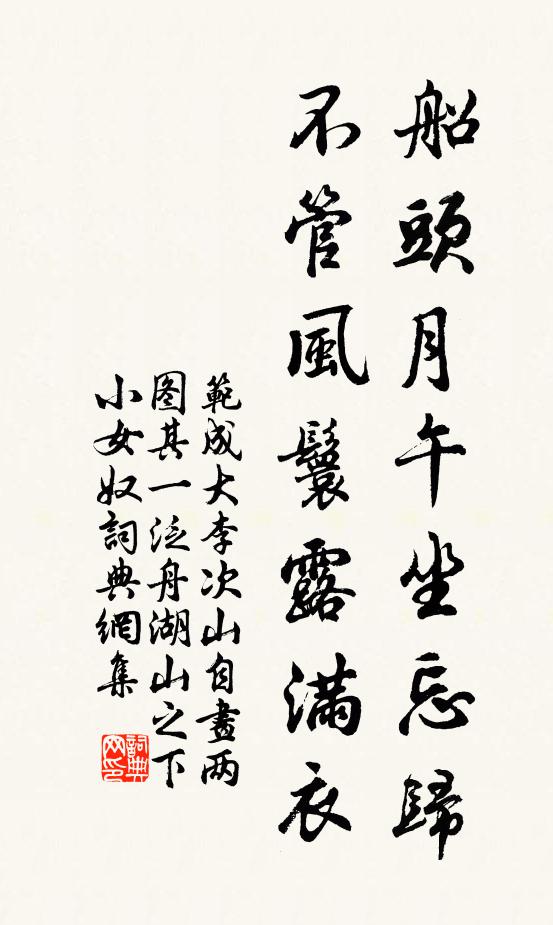 船頭月午坐忘歸
不管風鬟露滿衣
範成大李次山自畫两
图其一泛舟湖山之下
小女奴詞典網集
詞典
网印